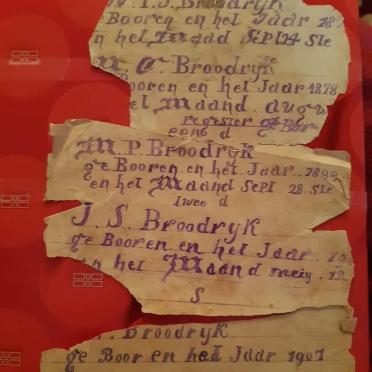 J. Broodryk
ge Booren en het Jaar 18
en het Maad Sept 14 Ste
C. Broodryk
Booren en het Jaar 1878
el Maand augu
register ge Bor
eene d
M. P. Broodryk
ge Booren en het Jaar .. 1890
en het Maand Sept . 28 . Ste
twee d
J. S. Broodryk
ge Booren en het Jaar .
en het Maand meiy . 12
S
. Broodryk
ge Boor en en het Jaar 1907